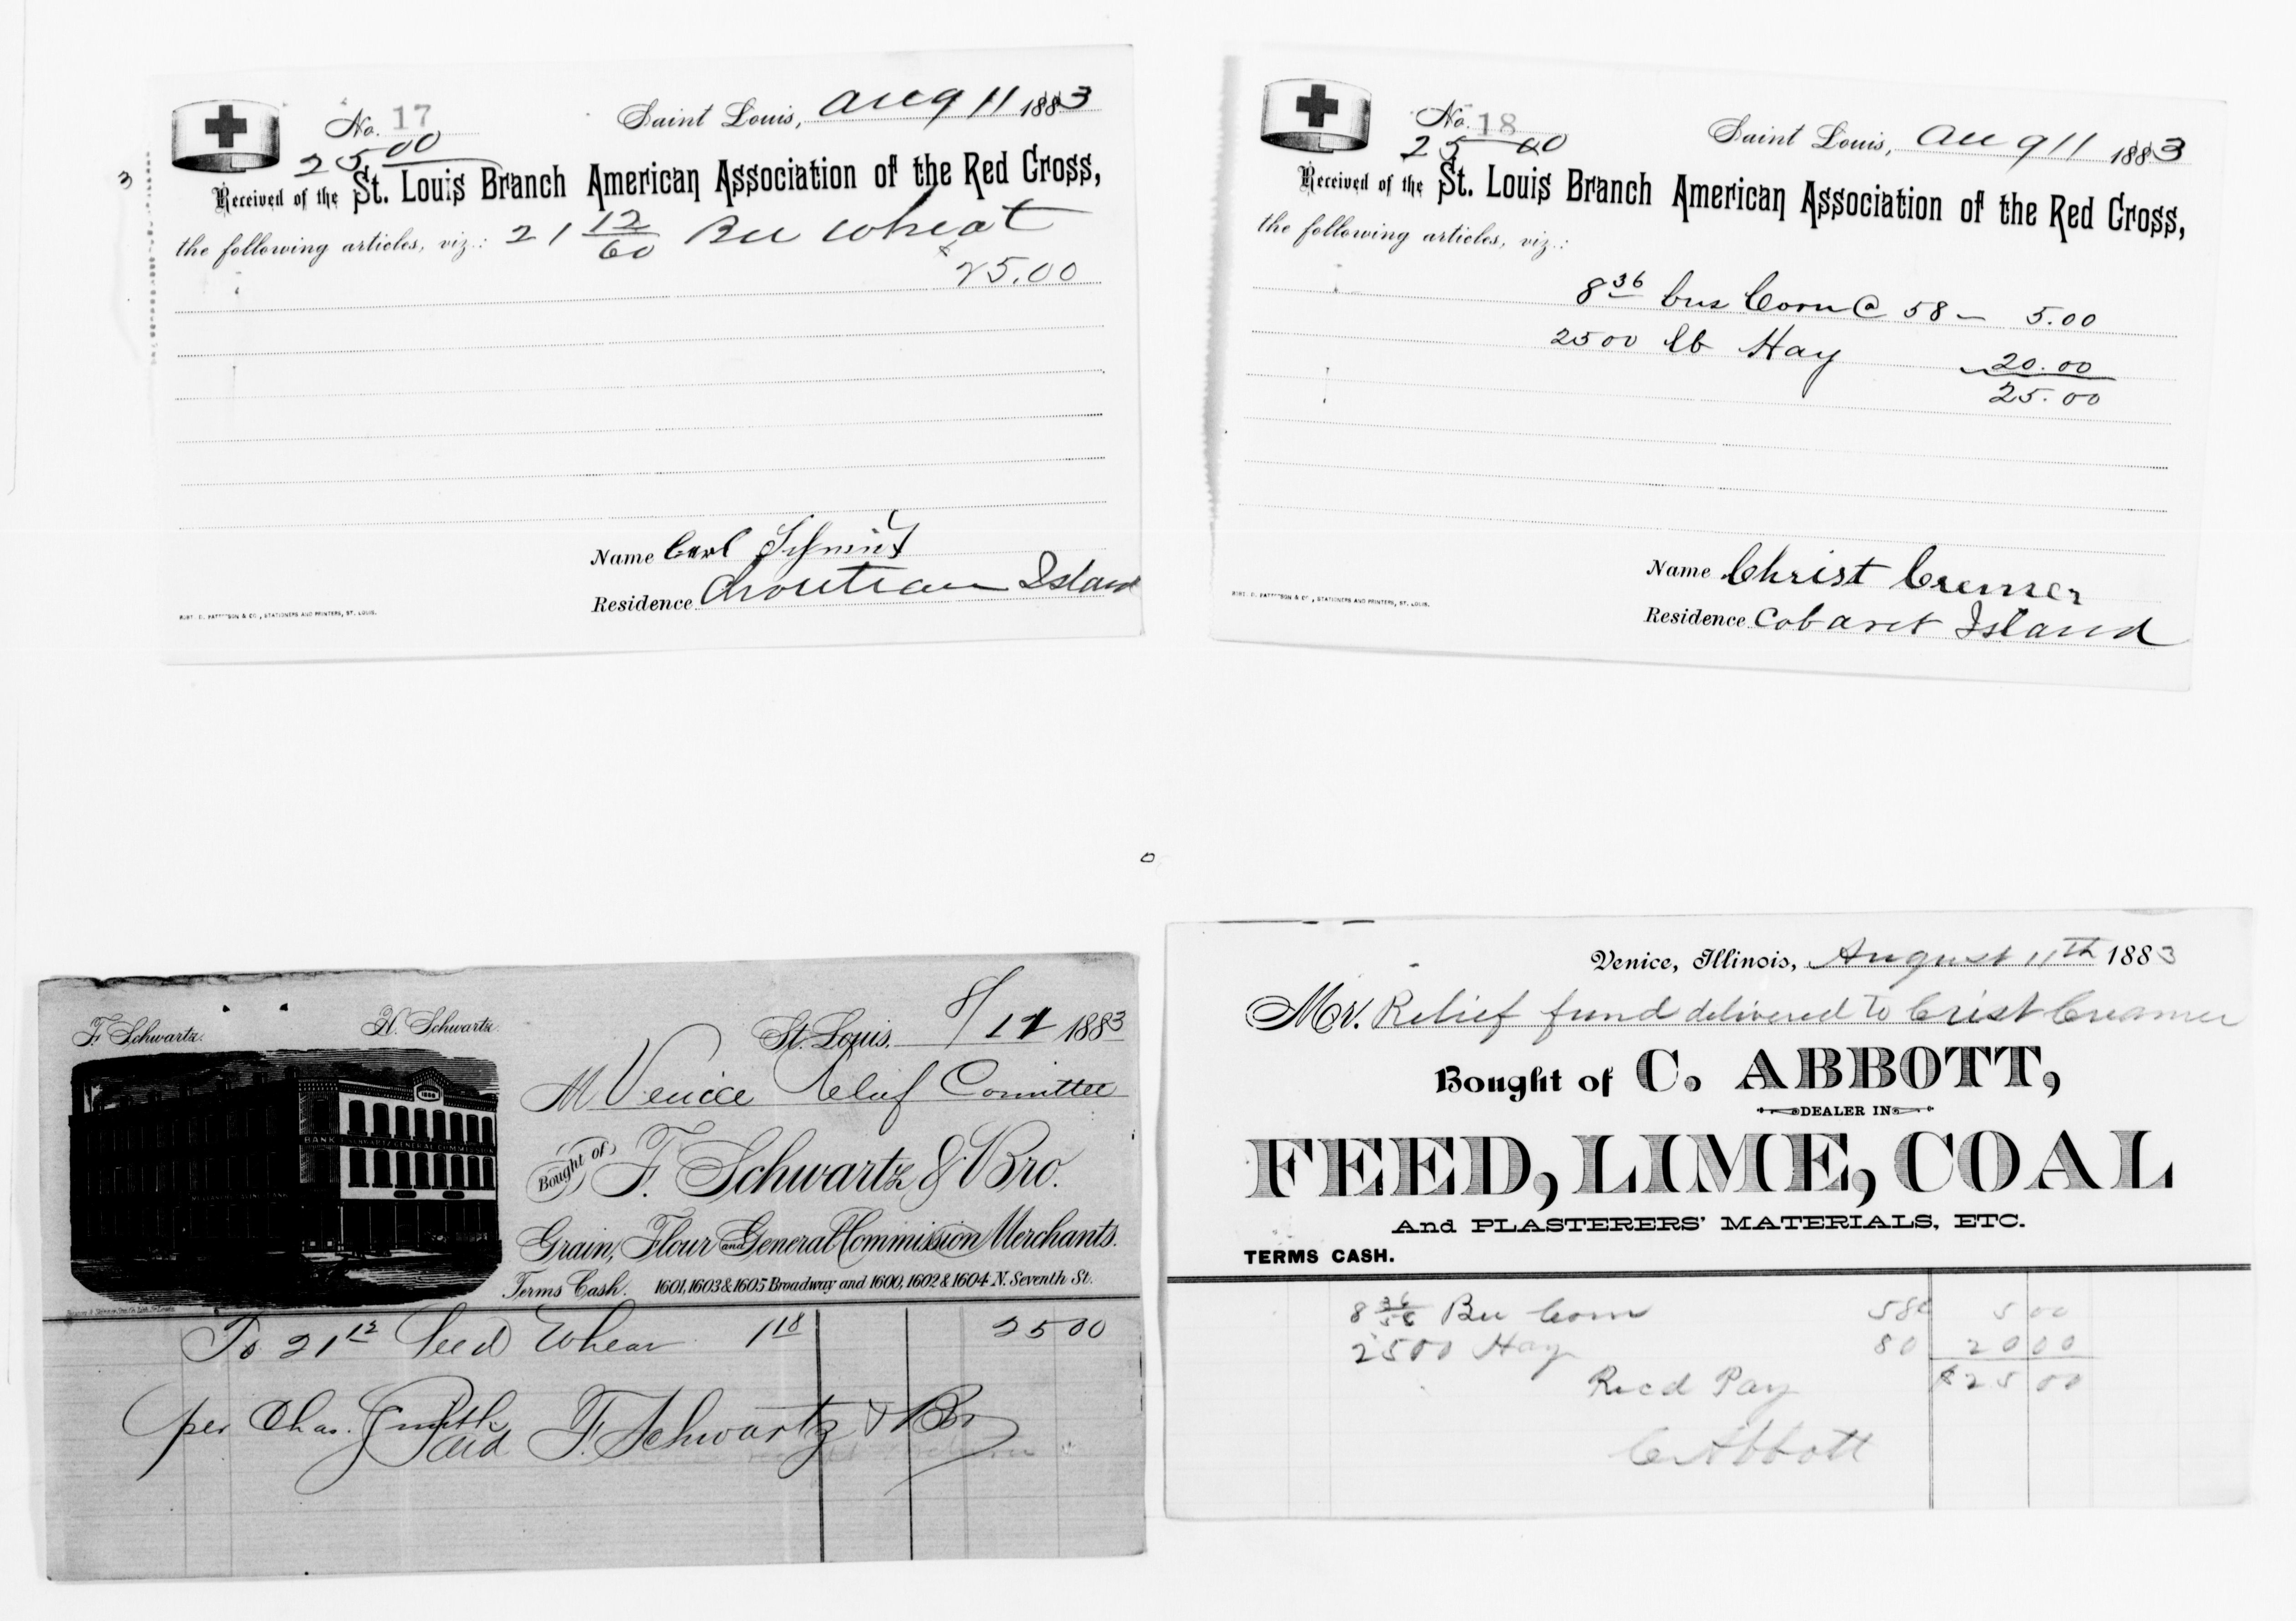 No. 17
Saint Louis, Aug 11 1883
25 00
Received of the St. Louis Branch American Association of the Red Cross,
the following articles, viz.: 21 12/60 Bu Wheat
25.00
3
Name Carl Schmidt
Residence Chouteau Island
STATIONERS AND PRINTERS, ST. LOUIS.
No. 18
Saint Louis, Aug 11 1883
25 00
Received of the St. Louis Branch American Association of the Red Cross,
the following articles, viz.:
8 36 bus Corn @ 58 – 5.00
2500 lb Hay 20.00
25.00
Name Christ Cremer
Residence Cobaret Island
STATIONERS AND PRINTERS, ST. LOUIS.
F. Schwartz. H. Schwartz.
St. Louis, 8/11 1883
M Venice Relief Comittee
Bought of F. Schwartz & Bro.
Grain, Flour and General Commission Merchants.
Terms Cash. 1601, 1603 & 1605 Broadway and 1600, 1602 & 1604 N. Seventh St.
To 21 12 Seed Wheat 1 18 25 00
per Chas. Smith
Paid F. Schwartz & Bro
Venice, Illinois, August 11th 1883
Mr. Relief fund delivered to Crist Creamer
Bought of C. ABBOTT,
DEALER IN
FEED, LIME, COAL
And PLASTERERS' MATERIALS, ETC.
TERMS CASH.
8 36/56 Bu Corn 58c 5 00
2500 Hay 80 20 00
Recd Pay $25 00
C Abbott